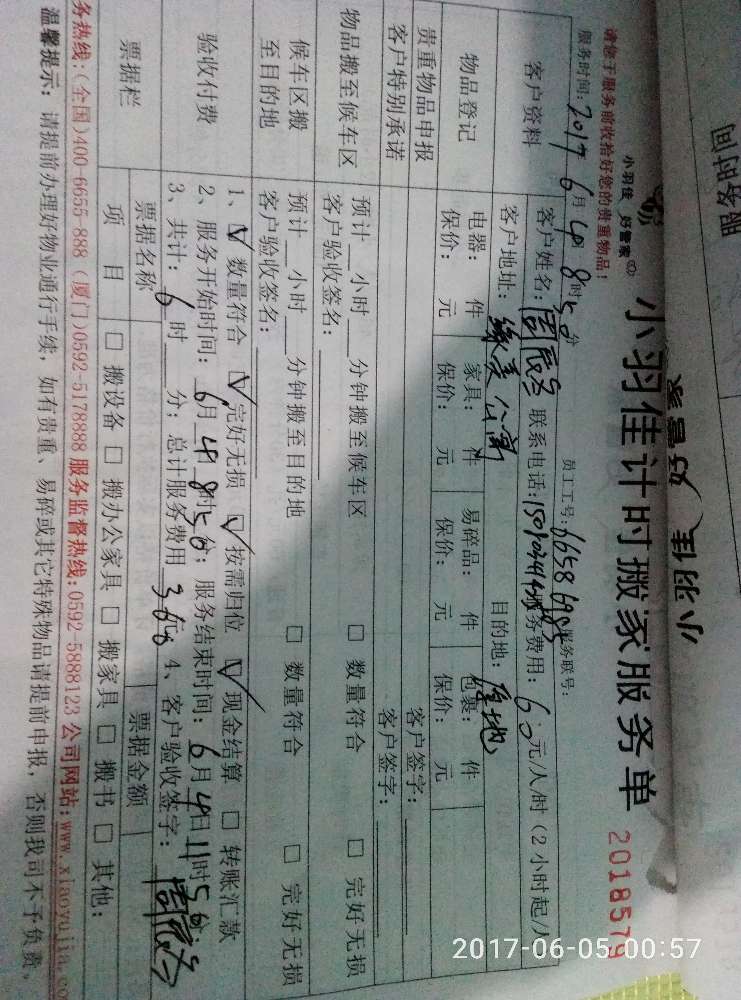 服务时间
小羽佳 好管家
小羽佳 好管家
小羽佳计时搬家服务单 2018579
请您于服务前收拾好您的贵重物品!
服务时间:2017年6月4日8时50分 员工工号:6658 6985 服务联号:
客户资料 客户姓名: 联系电话: 服务费用:60元/人/时(2小时起/人
客户地址: 公寓 目的地:
物品登记 电器: 件 家具: 件 易碎品: 件 包裹: 件
保价: 元 保价: 元 保价: 元 保价: 元
贵重物品申报 客户签字:
客户特别承诺 客户签字:
物品搬至候车区 预计 小时 分钟搬至候车区 □ 数量符合 □ 完好无损
客户验收签名:
候车区搬至目的地 预计 小时 分钟搬至目的地 □ 数量符合 □ 完好无损
客户验收签名:
验收付费 1、☑ 数量符合 ☑ 完好无损 ☑ 按需归位 ☑ 现金结算 □ 转账汇款
2、服务开始时间:6月4日8时50分;服务结束时间:6月4日11时50分;
3、共计:6时 分;总计服务费用360元 4、客户验收签字:
票据栏 票据名称 票据金额
项 目 □ 搬设备 □ 搬办公家具 □ 搬家具 □ 搬书 □ 其他:
务热线:(全国)400-6655-888 (厦门)0592-5178888 服务监督热线:0592-5888123 公司网站:www.xiaoyujia.co
温馨提示:请提前办理好物业通行手续,如有贵重、易碎或其它特殊物品请提前申报,否则我司不予负责
2017-06-05 00:57